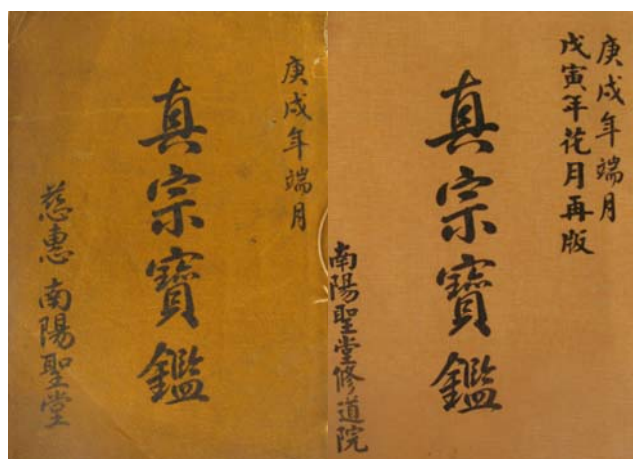 庚戌年端月
真宗寶鑑
慈惠 南陽聖堂
庚戌年端月
戊寅年花月再版
真宗寶鑑
南陽聖堂修道院